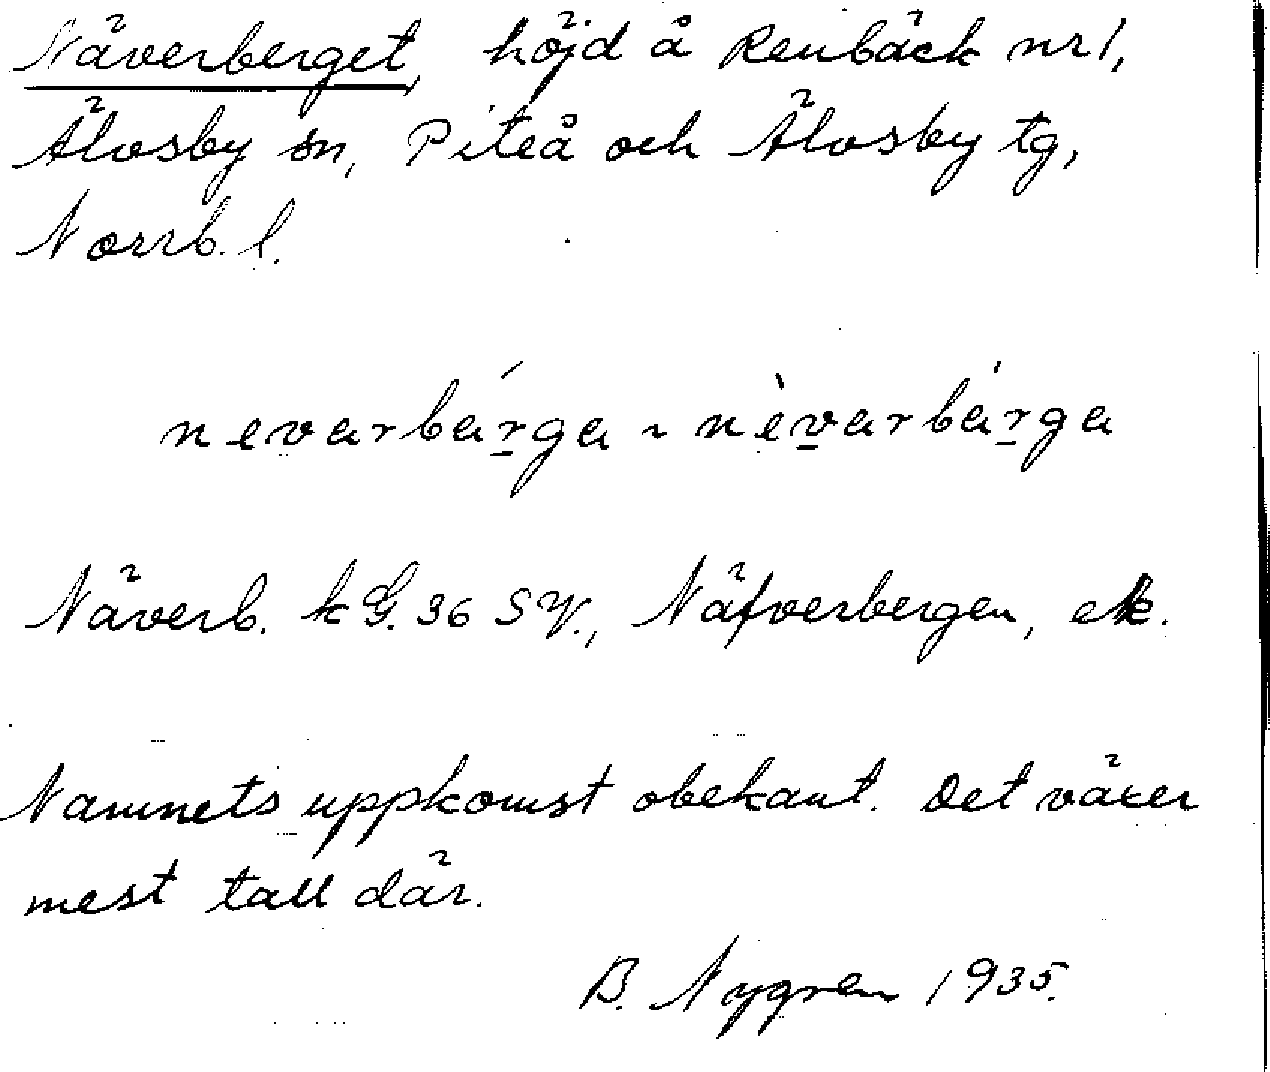 Näverberget, höjd å Renbäck nr 1,
Älvsby sn, Piteå och Älvsby tg,
Norrb. l.
nevarbárga ~ nèvarbárga
Näverb. k G. 36 SV., Näfverbergen, ek.
Namnets uppkomst obekant. Det växer
mest tall där.
B. Nygren 1935.